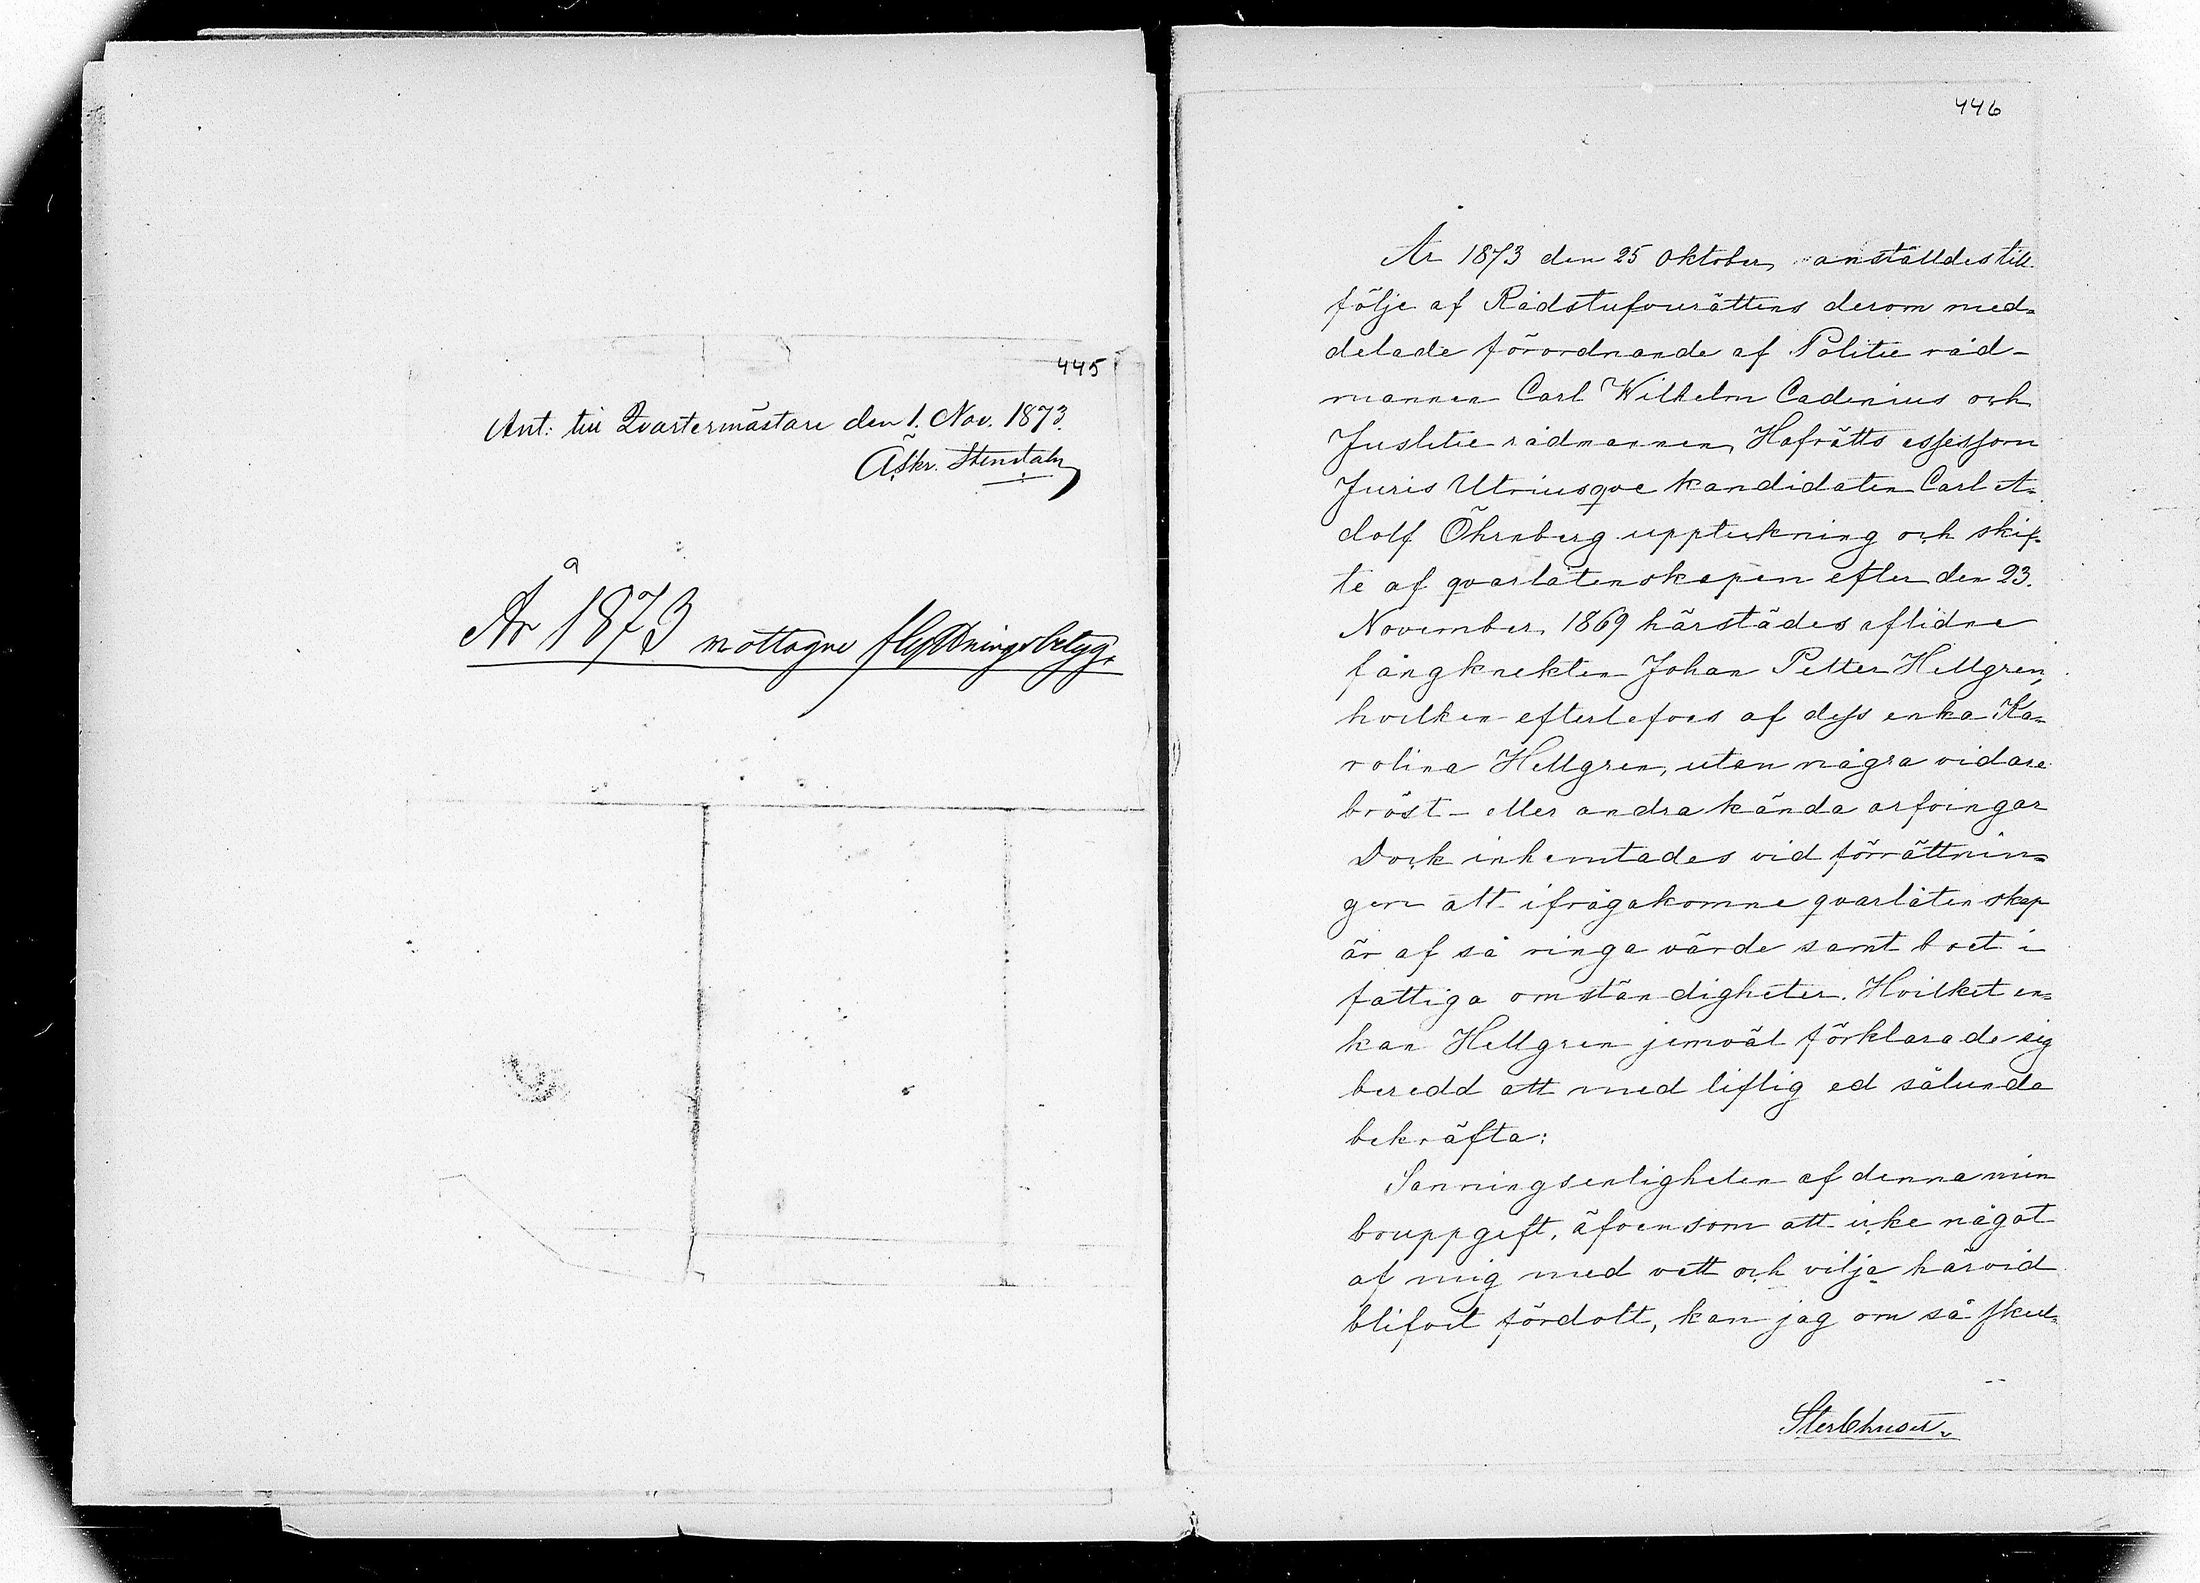 445
Ant: till Qvartermästare den 1. Nov. 1873.
År 1873 mottagne flyttningsbetyg.
446
År 1873 den 25 Oktober, anställdes till
följe af Rådstufvurättens derom med-
delade förordnande af Politie råd-
mannen Carl Wilhelm Cadenius och
Justitie rådmannen, Hofrätts assessorn
Juris Utriusqve kandidaten Carl A-
dolf Öhrnberg uppteckning och skif-
te af qvarlåtenskapen efter den 23.
November, 1869 härstädes aflidne
fångknekten Johan Petter Hellgren,
hvilken efterlefves af dess enka Ka-
rolina Hellgren, utan några vidare
bröst- eller andra kända arfvingar
Dock inhemtades vid förrättnin-
gen att ifrågakomne qvarlåtenskap
är af så ringa värde samt boet i
fattiga omständigheter. Hvilket en-
kan Hellgren jemväl förklarade sig
beredd att med liflig ed sålunda
bekräfta:
Sanningsenligheten af denna min
bouppgift, äfvensom att icke något
af mig med vett och vilja härvid
blifvit fördolt, kan jag om så skul-
Sterbhuset